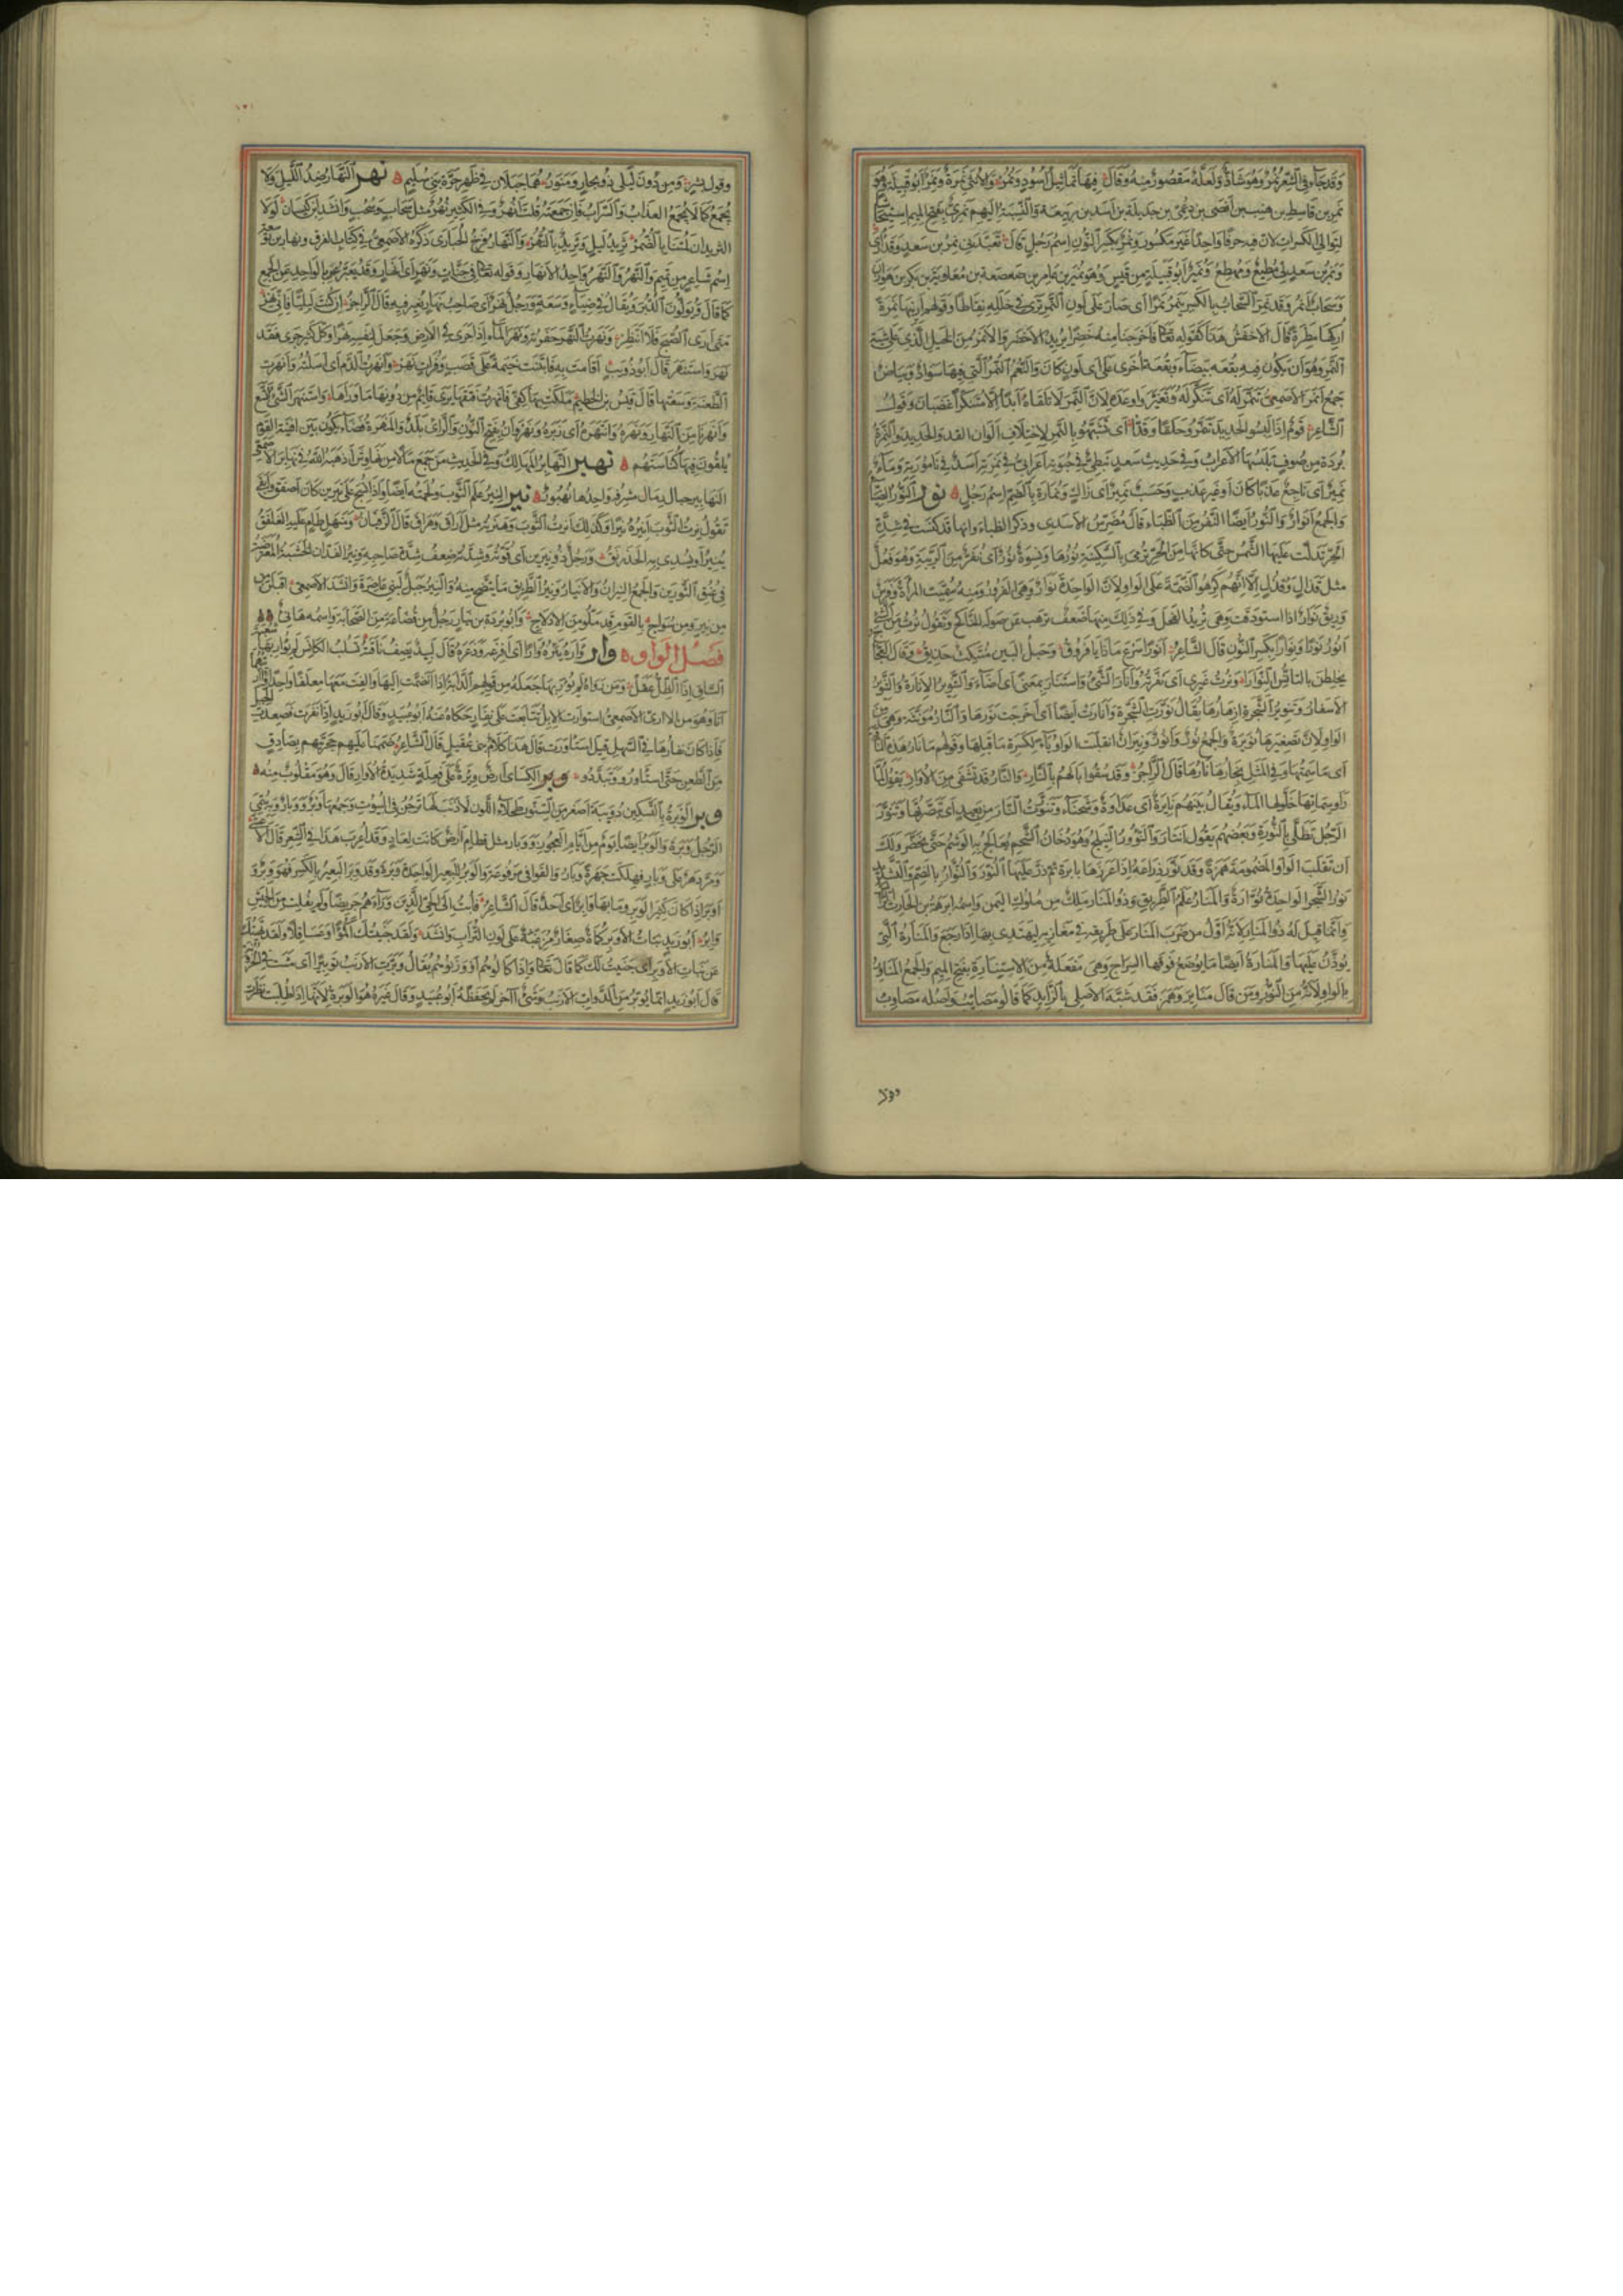 وقد جاء في الشعر نمر وهو شاذ ولعله مقصور منه وقال فيها تماثيل اسود ونمر والانثى نمرة ونمر ابو قبيلة وهو
نمر بن قاسط بن هنب بن افصى بن دعمي بن جديلة بن اسد بن ربيعة والنسبة اليهم نمري بفتح الميم استيحاشا
لتوالي الكسرات لان فيه حرفا واحدا غير مكسور ونمر بكسر النون اسم رجل قال تعبدني نمر بن سعد وقد ارى
ونمر بن سعد لي مطيع ومهطع ونمير ابو قبيلة من قيس وهو نمير بن عامر بن صعصعة بن معاوية بن بكر بن هوازن
وسحاب نمر وقد نمر السحاب بالكسر ينمر نمرا اي صار على لون النمر ترى في خلله نقاطا وقولهم ارنيها نمرة
اركها مطرة قال الاخفش هذا كقوله تعالى فاخرجنا منه خضرا يريد الاخضر والانمر من الخيل الذي على شية
النمر وهو ان يكون فيه بقعة بيضاء وبقعة اخرى على اي لون كان والنعم النمر التي فيها سواد وبياض
جمع انمر الاصمعي تنمر له اي تنكر له وتغير واوعده لان النمر لا تلقاه ابدا الا متنكرا غضبان وقول
الشاعر قوم اذا لبسوا الحديد تنمروا حلقا وقدا اي تشبهوا بالنمر لاختلاف الوان القد والحديد والنمرة
بردة من صوف تلبسها الاعراب وفي حديث سعد نبطي في حبوته اعرابي في نمرته اسد في تامورته وماء
نمير اي ناجع عذبا كان او غير عذب وحسب نمير اي زاك ونمارة بالضم اسم رجل نور النور الضياء
والجمع انوار والنور ايضا النفر من الظباء قال مضرس الاسدي وذكر الظباء وانها قد كنست في شدة
الحر تدلت عليها الشمس حتى كانها من الحر ترمي بالسكينة نورها ونسوة نور اي نفر من الريبة وهو فعل
مثل قذال وقذل الا انهم كرهوا الضمة على الواو لان الواحدة نوار وهي الفرور ومنه سميت المراة وفرس
وديق نوار اذا استودقت وهي تريد الفحل وفي ذلك منها ضعف ترهب عن صولة الناكح وتقول نرت من الشيء
انور نورا ونوارا بكسر النون قال الشاعر انورا سرع ماذا يا فروق وحبل البين منتكث حذيق وقال العجاج
يخلطن بالتانس النوارا ونرت غيري اي نفرته وانار الشيء واستنار بمعنى اي اضاء والتنوير الانارة والتنوير
الاسفار وتنوير الشجرة ازهارها يقال نورت الشجرة وانارت ايضا اي اخرجت نورها والنار مؤنثة وهي من
الواو لان تصغيرها نويرة والجمع نور وانور ونيران انقلبت الواو ياء لكسرة ما قبلها وقولهم ما نار هذه الناقة
اي ما سمتها وفي المثل نجارها نارها قال الراجز وقد سقوا ابالهم بالنار والنار قد تشفي من الاوار يقول لما
راوا سماتها خلوا لها الماء ويقال بينهم نايرة اي عداوة وشحناء وتنورت النار من بعيد اي تبصرتها وتنور
الرجل تطلى بالنورة وبعضهم يقول انتار والنوور النيلج وهو دخان الشحم يعالج به الوشم حتى يخضر ولك
ان تقلب الواو المضمومة همزة وقد نور ذراعه اذا غرزها بابرة ثم ذر عليها النوور والنوار بالضم والتشديد
نور الشجر الواحدة نوارة والمنار علم الطريق وذو المنار ملك من ملوك اليمن واسمه ابرهة بن الحارث
وانما قيل له ذو المنار لانه اول من ضرب المنار على طريقه في مغازيه ليهتدي بها اذا رجع والمنارة التي
يؤذن عليها والمنارة ايضا ما يوضع فوقها السراج وهي مفعلة من الاستنارة بفتح الميم والجمع المناور
بالواو لانه من النور ومن قال مناير وهمز فقد شبه الاصلي بالزايد كما قالوا مصايب واصله مصاوب
وقول بشر ومن دون ليلى ذو بحار ومنور هما جبلان في ظهر حرة بني سليم نهر النهار ضد الليل ولا
يجمع كما لا يجمع العذاب والسراب فان جمعته قلت انهر وفي الكثير نهر مثل سحاب وسحب وانشد ابن كيسان لولا
الثريدان لمتنا بالضمر ثريد ليل وثريد بالنهر والنهار فرخ الحبارى ذكره الاصمعي في كتاب الفرق ونهار بن توسعة
اسم شاعر من تميم والنهر والنهر واحد الانهار وقوله تعالى في جنات ونهر اي انهار وقد يعبر بالواحد عن الجمع
كما قال ويولون الدبر ويقال في ضياء وسعة ورجل نهر اي صاحب نهار يغير فيه قال الراجز ان كنت ليليا فاني نهر
متى ارى الصبح فلا انتظر ونهرت النهر حفرته ونهر الماء اذا جرى في الارض وجعل لنفسه نهرا وكل كثير جرى فقد
نهر واستنهر قال ابو ذؤيب اقامت به فابتنت خيمة على قصب وفرات نهر وانهرت الدم اي اسلته وانهرت
الطعنة وسعتها قال قيس بن الخطيم ملكت بها كفي فانهرت فتقها يرى قائم من دونها ما وراها واستنهر الشيء اتسع
وانهرنا من النهار ونهره وانتهره اي زبره ونهروان بفتح النون والراء بلد والمنهرة فضاء يكون بين افنية القوم
يلقون فيها كناستهم نهبر النهابر المهالك وفي الحديث من جمع مالا من نهاوش اذهبه الله في نهابر الاصمعي
النهابير حبال رمال مشرفة واحدها نهبور نير النير علم الثوب ولحمته ايضا واذا نسج على نيرين كان اصفق وابقى
تقول نرت الثوب انيره نيرا وكذلك انرت الثوب وهنرته مثل ارقت وهرقت قال الزفيان ومنهل طام عليه الغلفق
ينير او يسدي به الخدرنق ورجل ذو نيرين اي قوته وشدته ضعف شدة صاحبه ونير الفدان الخشبة المعترضة
في عنق الثورين والجمع النيران والانيار ونير الطريق ما يتضح منه والنير جبل لبني غاضرة وانشد الاصمعي اقبلن
من نير ومن سواج بالقوم قد ملوا من الادلاج وابو بردة بن نيار رجل من قضاعة من الصحابة واسمه هانئ
فصل الواو وار واره يئره وارا اي افزعه وذعره قال لبيد يصف ناقته تسلب الكانس لم يوار بها شعبة
الساق اذا الظل عقل ومن رواه لم يؤر بها جعله من قولهم الدابة
اناوهو من الارى الاصمعي استوارت الابل تتابعت على نفار حكاه عنه ابو عبيد وقال ابو زيد اذا نفرت فصعدت الجبل
فاذا كان نفارها في السهل قيل استاورت قال هذا كلام بني عقيل قال الشاعر ضممنا عليهم حجرتيهم بصادق
من الطعن حتى استاوروا وتبددوا وير الكسائي ارض وئرة على فعلة شديدة الاوار قال وهو مقلوب منه
وبر الوبرة بالتسكين دويبة اصغر من السنور طحلاء اللون لا ذنب لها ترجن في البيوت وجمعها وبر ووبار وبه سمي
الرجل وبرة والوبر ايضا يوم من ايام العجوز ووبار مثل قطام ارض كانت لعاد وقد اعرب هذا في الشعر قال الاعشى
ومر دهر على وبار فهلكت جهرة وبار والقوافي مرفوعة والوبر للبعير الواحدة وبرة وقد وبر البعير بالكسر فهو وبر
اوبر اذا كان كثير الوبر وما بها وابر اي احد قال الشاعر فابت الى الحي الذين وراءهم جريضا ولم يفلت من الجيش
وابر ابو زيد بنات الاوبر كماة صغار مزغبة على لون التراب وانشد ولقد جنيتك اكمؤا وعساقلا ولقد نهيتك
عن بنات الاوبر اي جنيت لك كما قال تعالى واذا كالوهم او وزنوهم يقال وبرت الارنب توبيرا اي مشت في الحزونة
قال ابو زيد انما يوبر من الدواب الارنب وشيء اخر لم يحفظه ابو عبيد وقال غيره هو الوبرة لانها اذا طلبت نظرت